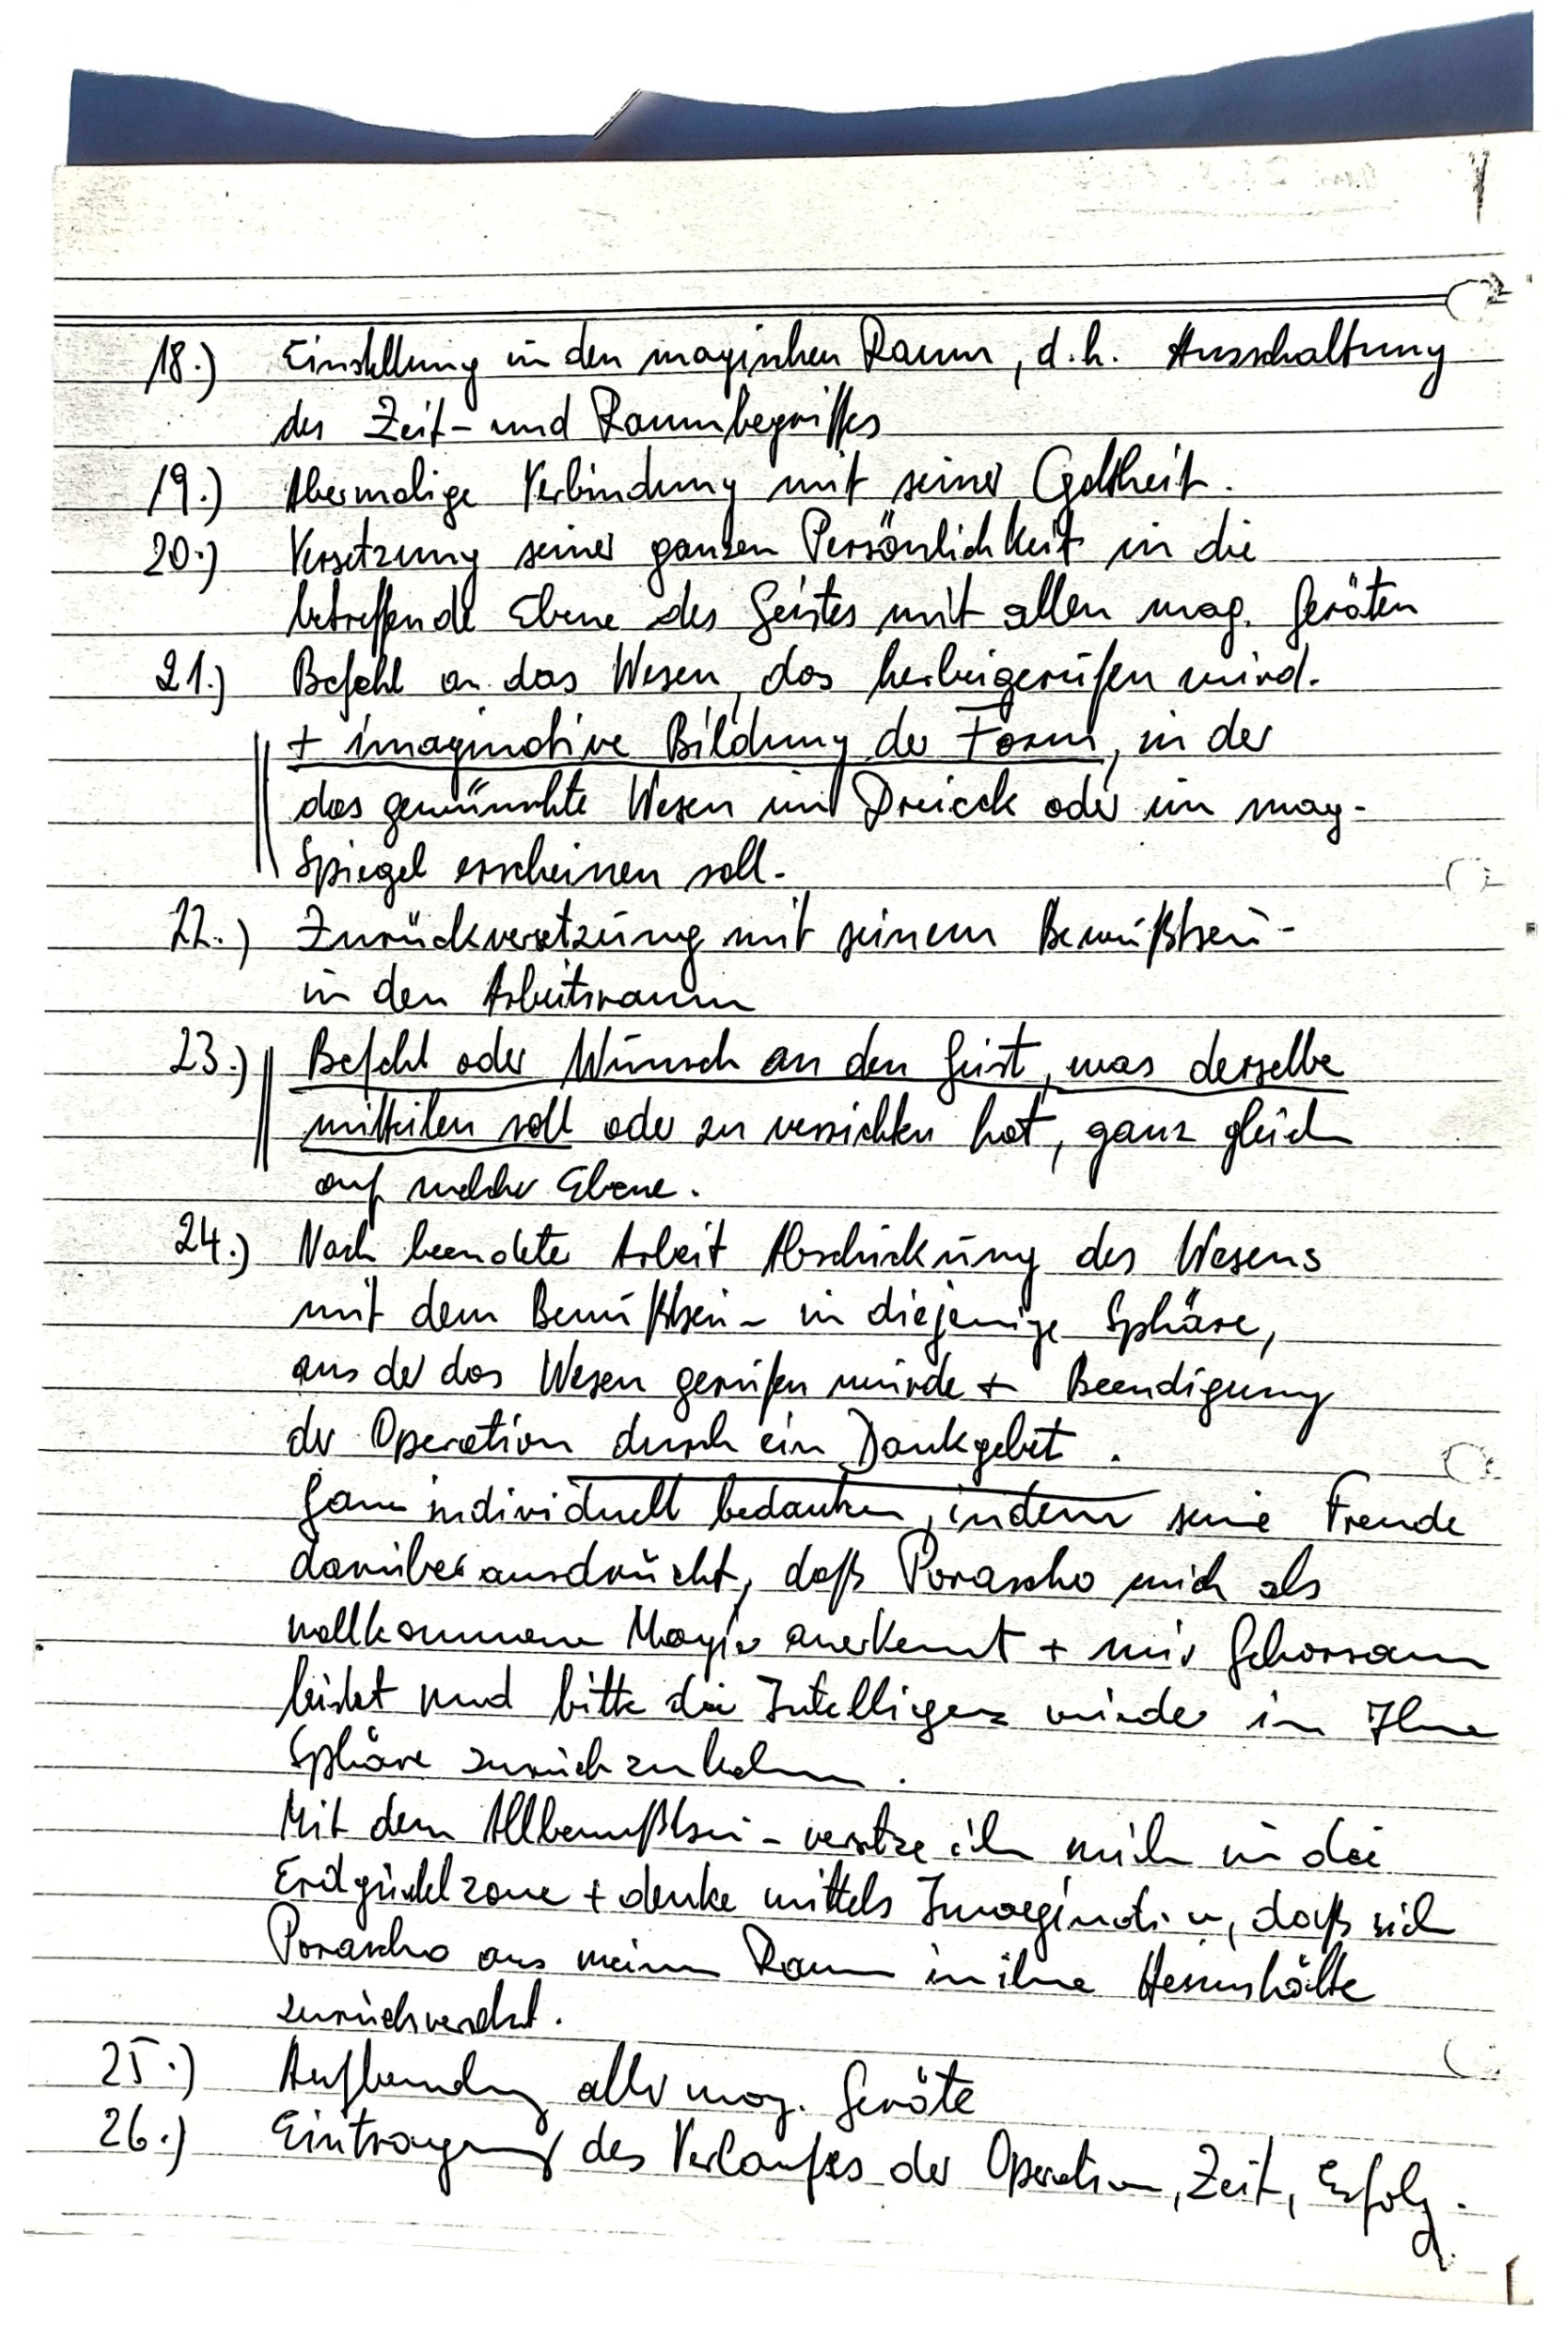 18.) Einstellung in den magischen Raum, d.h. Ausschaltung
des Zeit- und Raumbegriffes
19.) Abermalige Verbindung mit seiner Gottheit.
20.) Versetzung seiner ganzen Persönlichkeit in die
betreffende Ebene des Geistes mit allen mag. Geräten
21.) Befehl an das Wesen, das herbeigerufen wird.
+ imaginative Bildung der Form, in der
das gewünschte Wesen im Dreieck oder im mag.
Spiegel erscheinen soll.
22.) Zurückversetzung mit seinem Bewußtsein
in den Arbeitsraum
23.) Befehl oder Wunsch an den Geist, was derselbe
mitteilen soll oder zu verrichten hat, ganz gleich
auf welcher Ebene.
24.) Nach beendeter Arbeit Abschickung des Wesens
mit dem Bewußtsein in diejenige Sphäre,
aus der das Wesen gerufen wurde + Beendigung
der Operation durch ein Dankgebet.
Ganz individuell bedanken, indem seine Freude
darüber ausdrückt, daß Porascho mich als
vollkommenen Magier anerkennt + mir Gehorsam
leistet und bitte die Intelligenz wieder in Ihre
Sphäre zurückzukehren.
Mit dem Allbewußtsein versetze ich mich in die
Erdgürtelzone + denke mittels Imagination, daß sich
Porascho aus meinem Raum in ihre
zurückversetzt.
25.) aller mag. Geräte
26.) Eintragung des Verlaufes der Operation, Zeit, Erfolg.